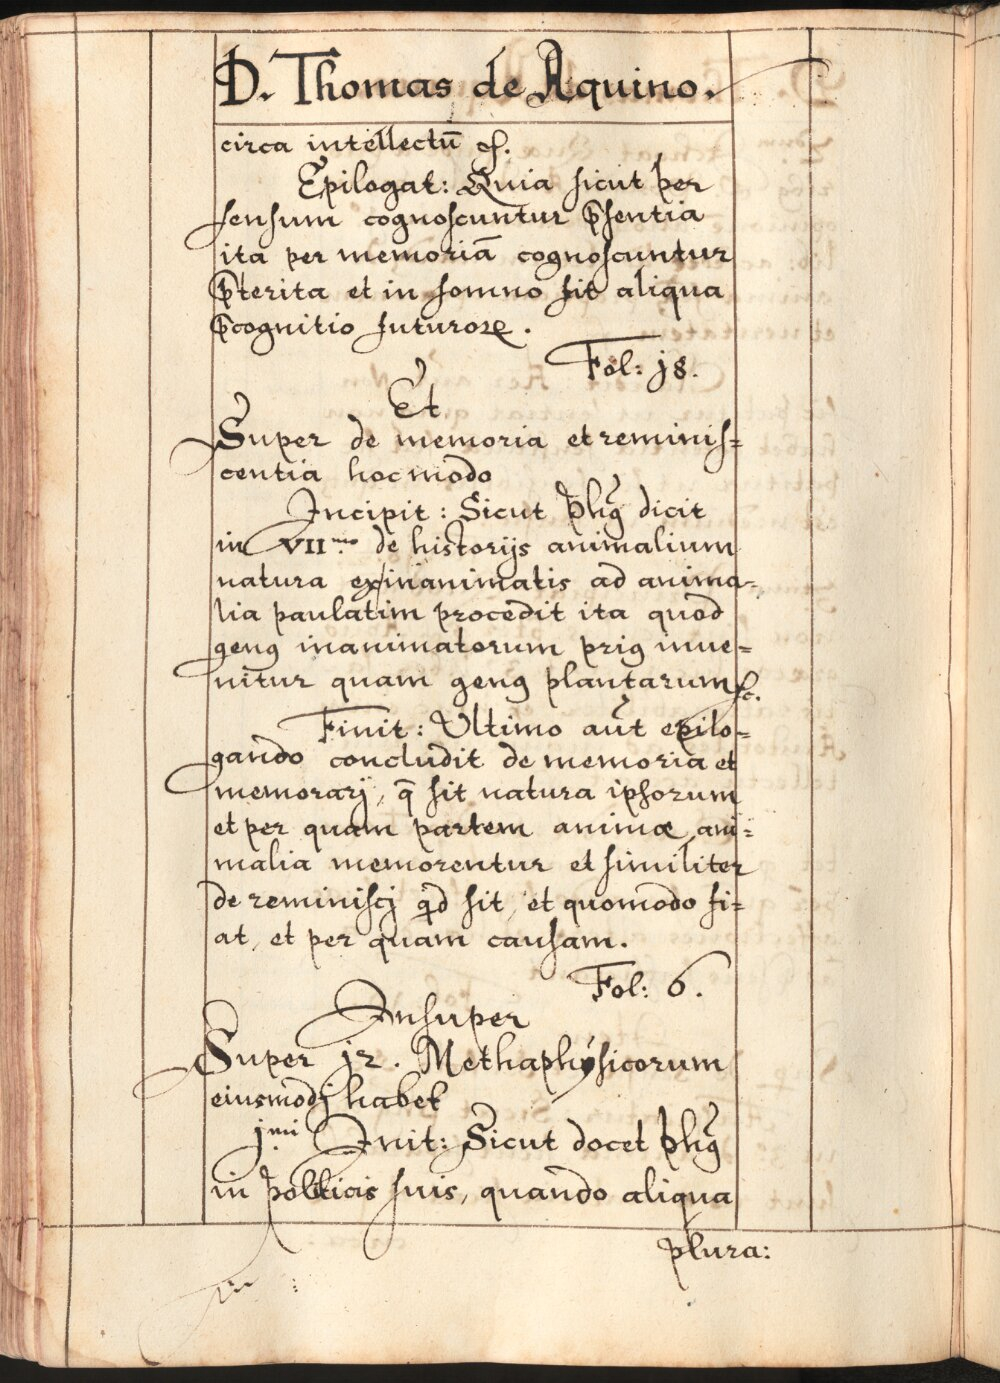 D. Thomas de Aquino.
circa intellectū ꝛc.
Epilogat: Quia sicut per
sensum cognoscuntur p̄sentia
ita per memoriā cognoscuntur
p̄terita et in somno fit aliqua
p̄cognitio futuroꝝ.
Fol: j8.
Et
Super de memoria et reminis=
centia hoc modo
Incipit: Sicut phūs dicit
in VII.mo de historijs animalium
natura ex inanimatis ad anima-
lia paulatim procedit ita quod
genꝰ inanimatorum priꝰ inue=
nitur quam genꝰ plantarum ꝛc.
Finit: Ultimo aūt epilo-
gando concludit de memoria et
memorarj, q̄ sit natura ipsorum
et per quam partem animæ ani=
malia memorentur et similiter
de reminiscj qd sit, et quomodo fi=
at, et per quam causam.
Fol: 6.
Insuper
Super j2. Methaphÿsicorum
eiusmodj habet
j.mi Init: Sicut docet phūs
in politicis suis, quando aliqua
plura: